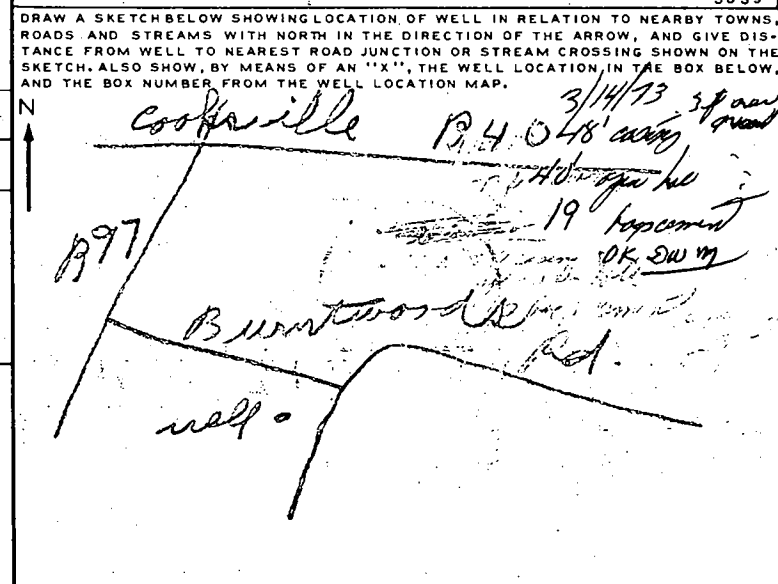 DRAW A SKETCH BELOW SHOWING LOCATION OF WELL IN RELATION TO NEARBY TOWNS,
ROADS AND STREAMS WITH NORTH IN THE DIRECTION OF THE ARROW, AND GIVE DIS-
TANCE FROM WELL TO NEAREST ROAD JUNCTION OR STREAM CROSSING SHOWN ON THE
SKETCH. ALSO SHOW, BY MEANS OF AN "X", THE WELL LOCATION IN THE BOX BELOW,
AND THE BOX NUMBER FROM THE WELL LOCATION MAP.
N
3/14/73
Cooksville
R 40
48' casing
40' open hole
19 bags cement
OK
R 97
Burntwoods
Rd.
well